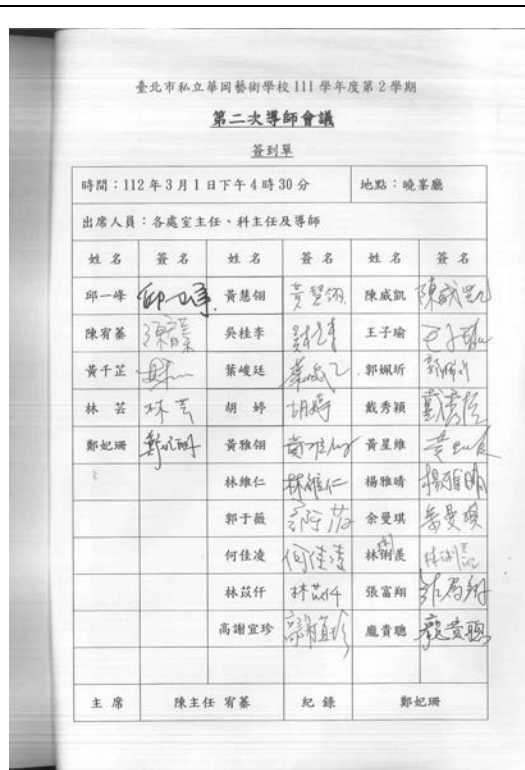 臺北市私立華岡藝術學校 111 學年度第 2 學期
第二次導師會議
簽到單
時間：112 年 3 月 1 日下午 4 時 30 分 地點：曉峯廳
出席人員：各處室主任、科主任及導師
姓 名 簽 名 姓 名 簽 名 姓 名 簽 名
邱一峰 邱一峰 黃慧翎 黃慧翎 陳威凱 陳威凱
陳宥蓁 陳宥蓁 吳桂李 王子瑜 王子瑜
黃千芷 葉峻廷 郭姵圻
林 芸 林芸 胡 婷 胡婷 戴秀穎 戴秀穎
鄭妃珊 鄭妃珊 黃雅翎 黃雅翎 黃星維
林維仁 林維仁 楊雅晴 楊雅晴
郭于薇 余曼琪 余曼琪
何佳凌 何佳凌 林 羨
林苡仟 林苡仟 張富翔 張富翔
高謝宜珍 高謝宜珍 龐貴聰 龐貴聰
主 席 陳主任 宥蓁 紀 錄 鄭妃珊